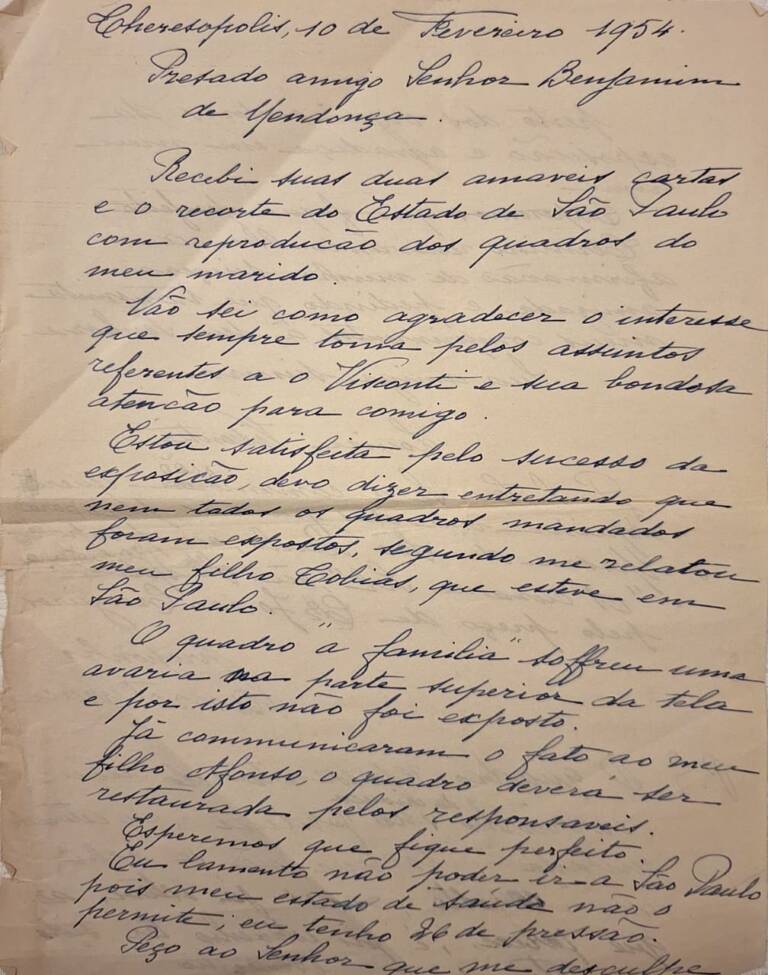 Theresopolis, 10 de Fevereiro 1954.
Presado amigo Senhor Benjamim
de Mendonça.
Recebi suas duas amaveis cartas
e o recorte do Estado de São Paulo
com reprodução dos quadros do
meu marido.
Não sei como agradecer o interesse
que sempre toma pelos assuntos
referentes a o Visconti e sua bondosa
atenção para comigo.
Estou satisfeita pelo sucesso da
exposição, devo dizer entretando que
nem todos os quadros mandados
foram expostos, segundo me relatou
meu filho Tobias, que esteve em
São Paulo.
O quadro "a familia" soffreu uma
avaria na parte superior da tela
e por isto não foi exposto.
Já communicaram o fato ao meu
filho Afonso, o quadro deverá ser
restaurada pelos responsaveis.
Esperemos que fique perfeito.
Eu lamento não poder ir a São Paulo
pois meu estado de saúde não o
permite; eu tenho 26 de pressão.
Peço ao Senhor que me desculpe